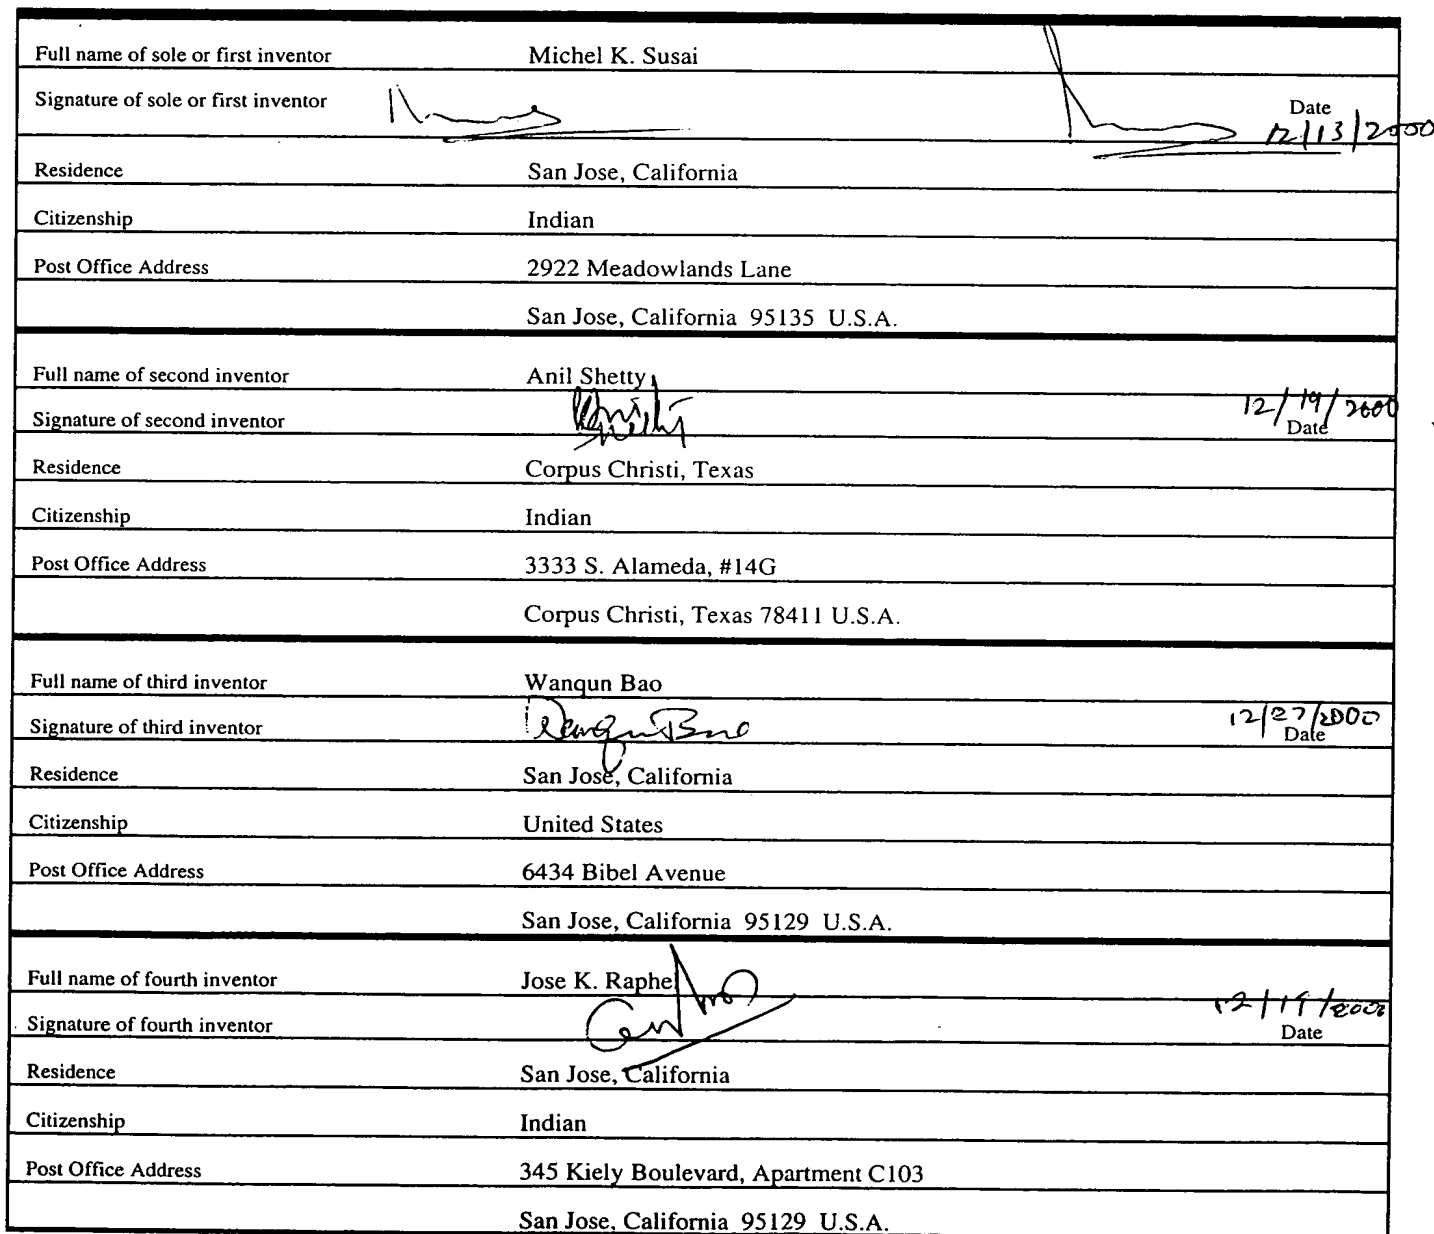 Full name of sole or first inventor Michel K. Susai
Signature of sole or first inventor Date
12/13/2000
Residence San Jose, California
Citizenship Indian
Post Office Address 2922 Meadowlands Lane
San Jose, California 95135 U.S.A.
Full name of second inventor Anil Shetty
12/19/2000
Signature of second inventor Date
Residence Corpus Christi, Texas
Citizenship Indian
Post Office Address 3333 S. Alameda, #14G
Corpus Christi, Texas 78411 U.S.A.
Full name of third inventor Wanqun Bao
12/27/2000
Signature of third inventor Wanqun Bao Date
Residence San Jose, California
Citizenship United States
Post Office Address 6434 Bibel Avenue
San Jose, California 95129 U.S.A.
Full name of fourth inventor Jose K. Raphel
12/19/2000
Signature of fourth inventor Date
Residence San Jose, California
Citizenship Indian
Post Office Address 345 Kiely Boulevard, Apartment C103
San Jose, California 95129 U.S.A.